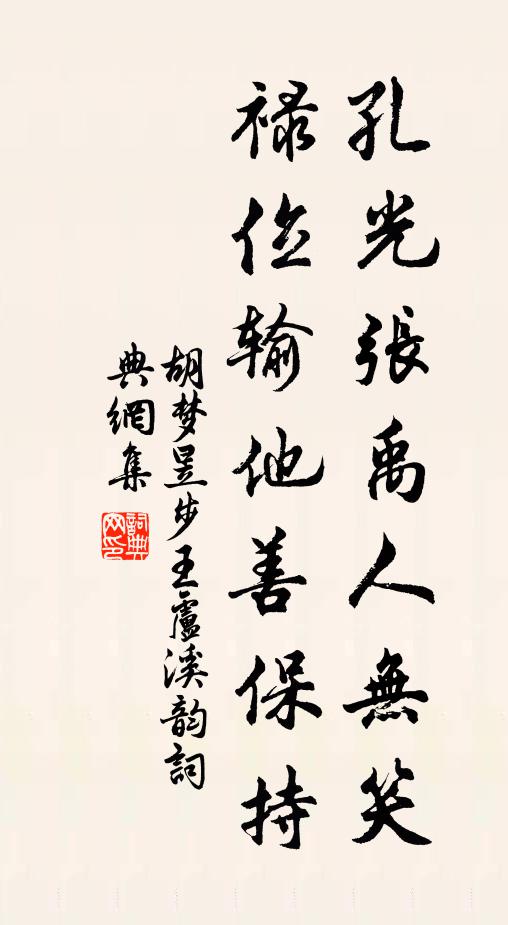 孔光張禹人無笑
禄位输他善保持
胡梦昱步王盧溪韵詞
典網集
詞典網印